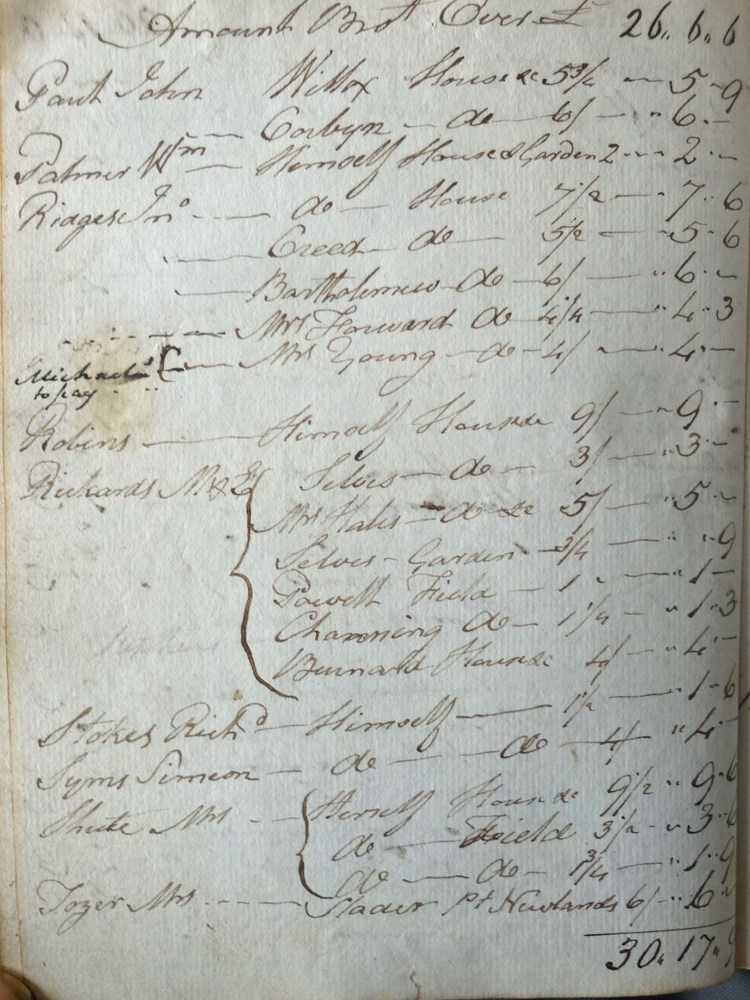 Amount Brot Over £ 26 " 6 " 6
Paut John Willox House &c 5 3/4 — 5 - 9
Corbyn — do — 6/ — " 6 " —
Palmer Wm — Himself House & Garden 2 - - 2 " —
Ridges Jno - - - — do — House 7 1/2 — " 7 - 6
— Creed — do — 5 1/2 — " 5 - 6
— Bartholemew — do — 6/ — " 6 " —
— Mrs Howard do — 4 1/4 — " 4 - 3
to pay — Mrs Young — do — 4/ — " 4 " —
Robins — Himself House &c 9/ — " 9 " —
Rickards Mr { Selves — do — 3/ — " 3 " —
Mrs Hales — do &c 5/ — " 5 " —
Selves - Garden — 3/4 — " - " 9
Powell Field — 1 " — " 1 " —
Channing do — 1 1/4 — " 1 - 3
Burnard House &c 4/ — " 4 " —
Stokes Richd — Himself — 1 1/2 — " 1 - 6
Syms Simeon — do — do — 4/ " 4 " —
Shute Mrs - - { Herself House &c 9 1/2 " 9 - 6
do — Field 3 1/2 - " 3 - 6
do — do — 1 3/4 — " 1 " 9
Tozer Mrs - - - - — Slader Pt Newlands 6/ - " 6 "
30 " 17 " 9